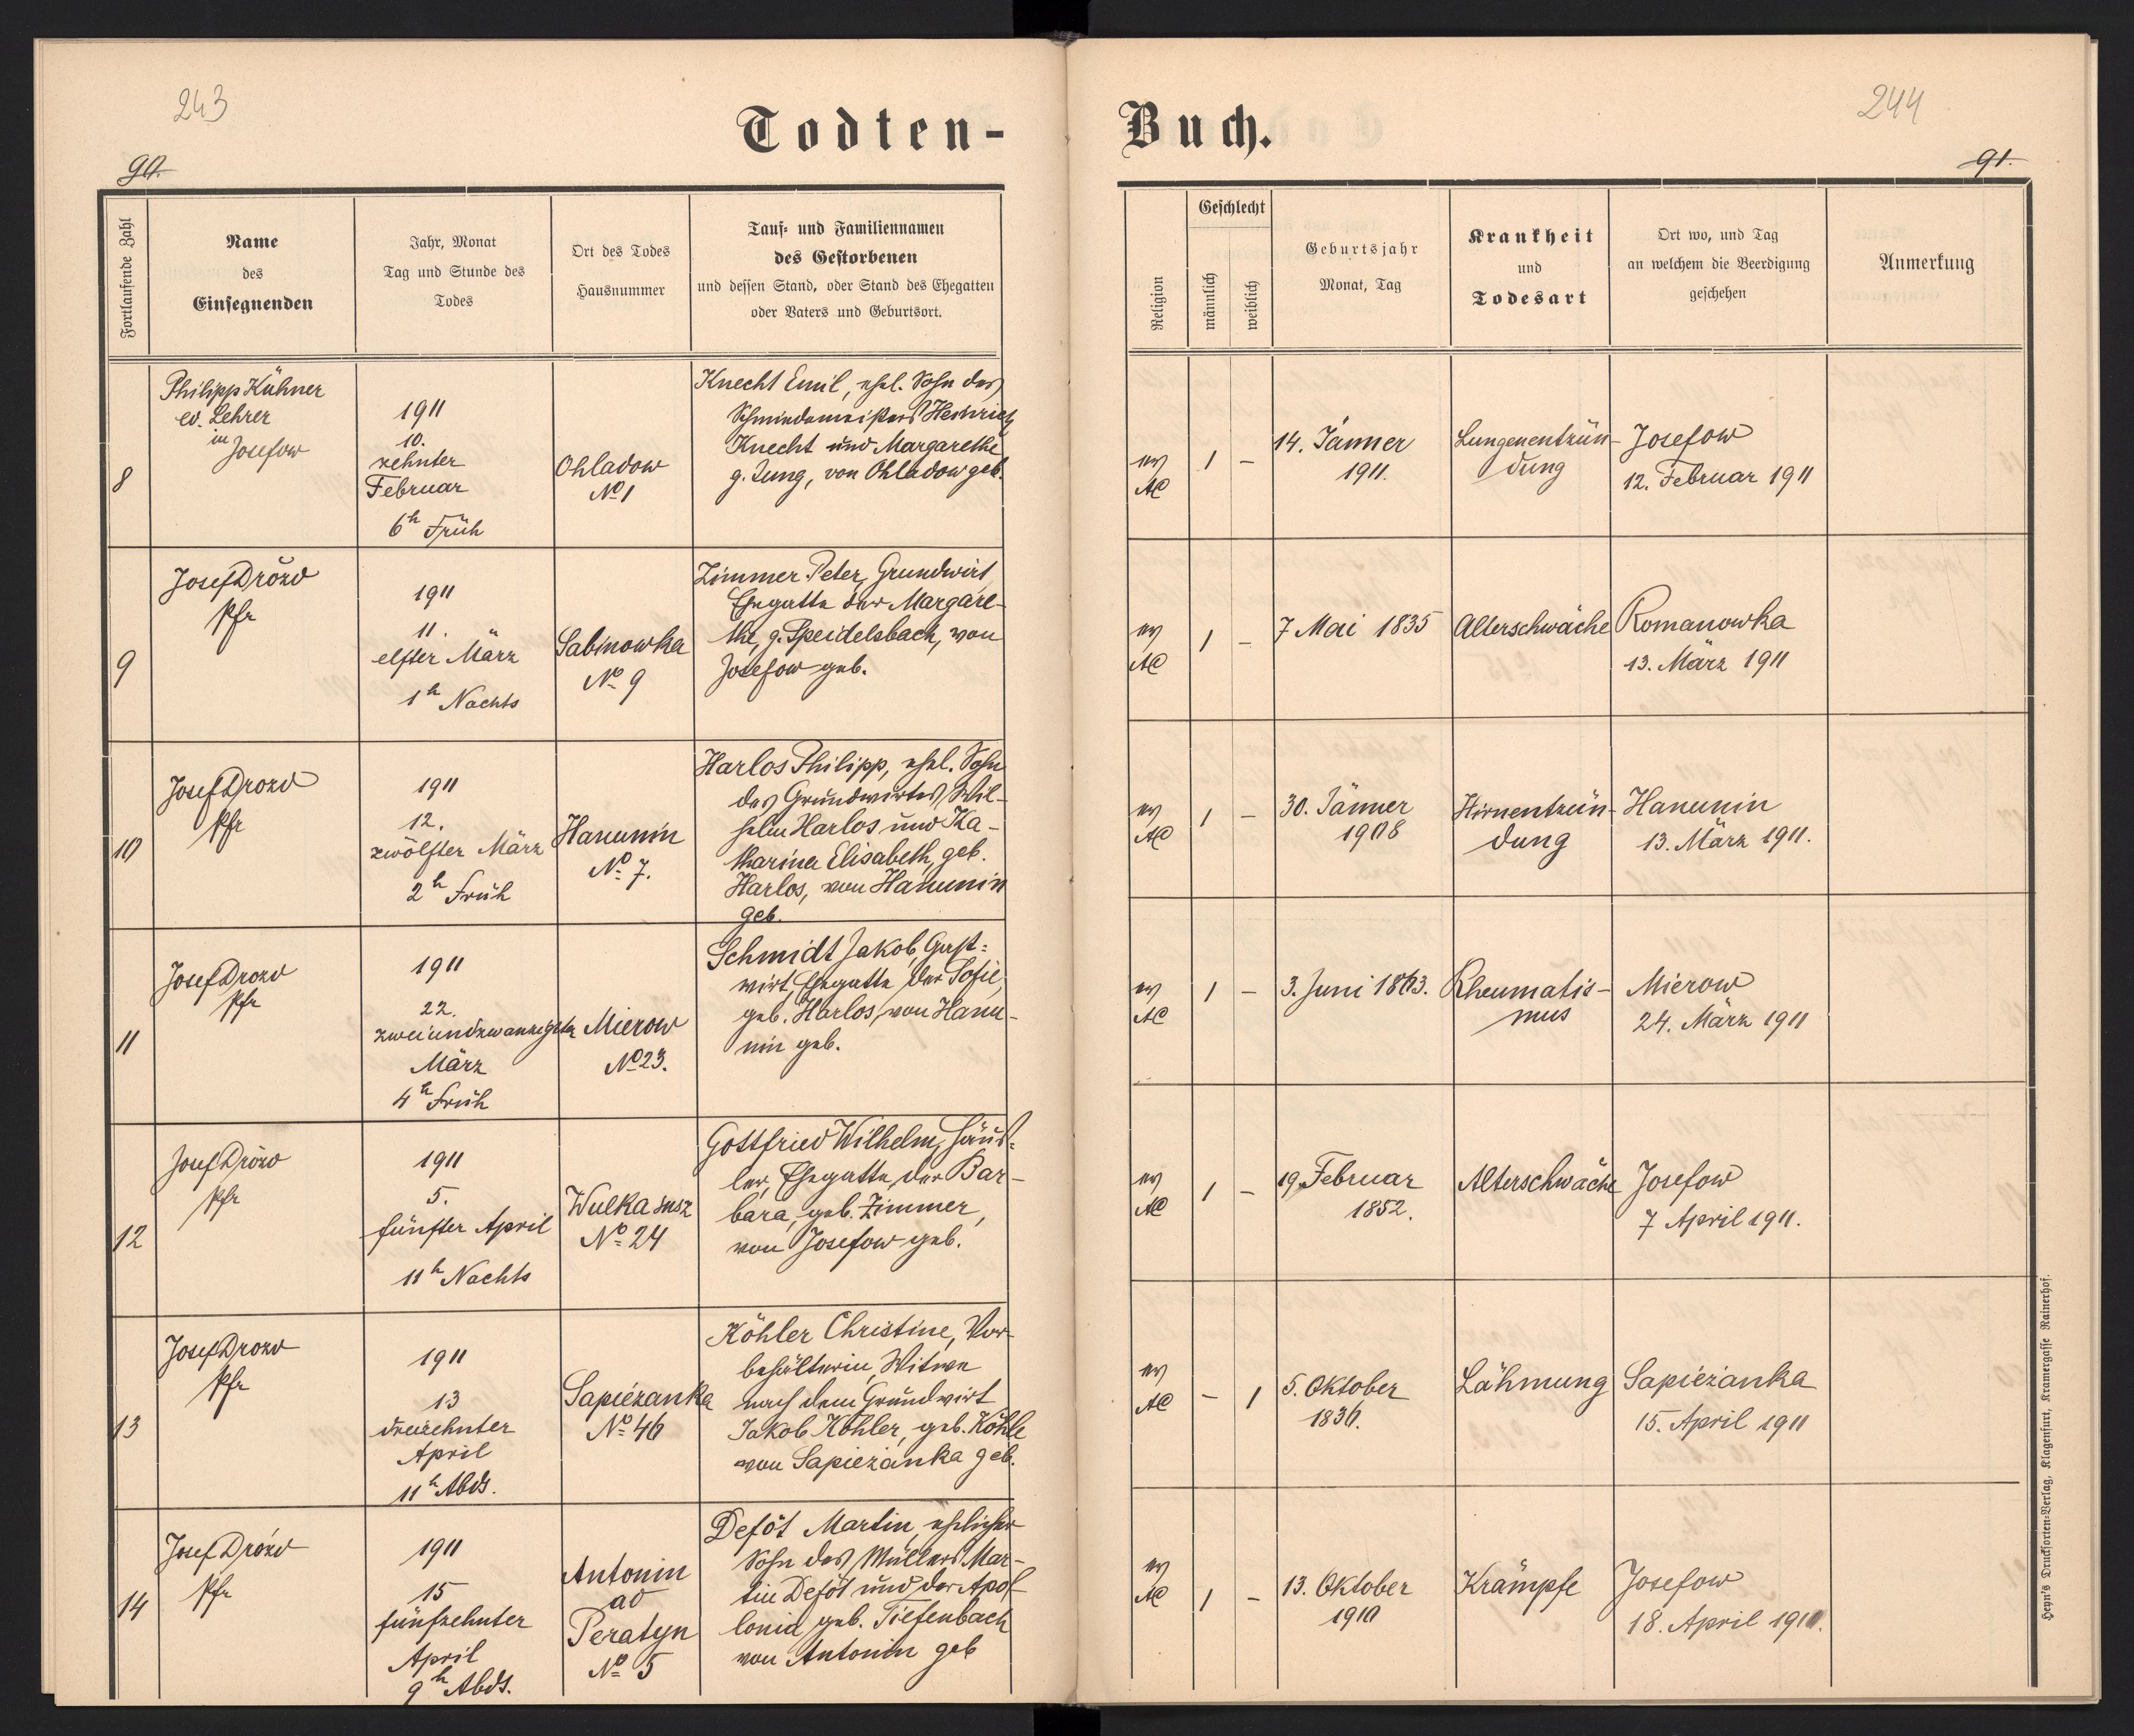 243
Todten-
90.
Fortlaufende Zahl
Name
des
Einsegnenden
Jahr, Monat
Tag und Stunde des
Todes
Ort des Todes
Hausnummer
Tauf- und Familiennamen
des Gestorbenen
und dessen Stand, oder Stand des Ehegatten
oder Vaters und Geburtsort.
8
Philipp Kühner
ev. Lehrer
in
Josefow
1911
10.
zehnter
Februar
6h Früh
Ohladow
No 1
Knecht Emil, ehel. Sohn des
Schmiedemeisters Heinrich
Knecht und Margarethe
g. Jung, von Ohladow geb.
9
Josef Drozd
Pfr
1911
11.
elfter März
1h Nachts
Sabinowka
No 9
Zimmer Peter, Grundwirt
Ehegatte der Margare-
the, g. Speidelsbach, von
Josefow geb.
10
Josef Drozd
Pfr
1911
12.
zwölfter März
2h Früh
Hanunin
No 7.
Harlos Philipp, ehel. Sohn
des Grundwirtes Wil-
helm Harlos und Ka-
tharina Elisabeth, geb.
Harlos, von Hanunin
geb.
11
Josef Drozd
Pfr
1911
22.
zweiundzwanzigster
März
4h Früh
Mierow
No 23.
Schmidt Jakob, Gast-
wirt, Ehegatte der Sofie,
geb. Harlos, von Hanu-
nin geb.
12
Josef Drozd
Pfr
1911
5.
fünfter April
11h Nachts
Wulka susz
No 24
Gottfried Wilhelm, Häus-
ler, Ehegatte der Bar-
bara, geb. Zimmer,
von Josefow geb.
13
Josef Drozd
Pfr
1911
13
dreizehnter
April
11h Abds.
Sapiezanka
No 46
Köhler Christine, Vor-
behälterin, Witwe
nach dem Grundwirt
Jakob Köhler, geb. Köhle
von Sapiezanka geb.
14
Josef Drozd
Pfr
1911
15
fünfzehnter
April
9h Abds.
Antonin
ad
Peratyn
No 5
Deföt Martin, ehelicher
Sohn des Müllers Mar-
tin Deföt und der Apol-
lonia geb. Tiefenbach
von Antonin geb
244
Buch.
91.
Religion
Geschlecht
männlich
weiblich
Geburtsjahr
Monat, Tag
Krankheit
und
Todesart
Ort wo, und Tag
an welchem die Beerdigung
geschehen
Anmerkung
ev
AC
1
-
14. Jänner
1911.
Lungenentzün-
dung
Josefow
12. Februar 1911
ev
AC
1
-
7 Mai 1835
Alterschwäche
Romanowka
13. März 1911
ev
AC
1
-
30. Jänner
1908
Hirnentzün-
dung
Hanunin
13. März 1911.
ev
AC
1
-
3. Juni 1863.
Rheumatis-
mus
Mierow
24. März 1911
ev
AC
1
-
19. Februar
1852.
Alterschwäche
Josefow
7 April 1911.
ev
AC
-
1
5. Oktober
1836.
Lähmung
Sapiezanka
15. April 1911
ev
AC
1
-
13. Oktober
1910
Krämpfe
Josefow
18. April 1911.
Heyn's Drucksorten-Verlag, Klagenfurt, Kramergasse Rainerhof.